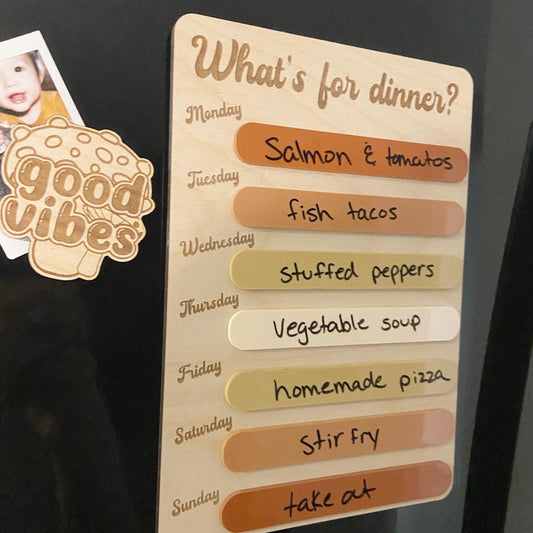 What's for dinner?
Monday
Salmon & tomatos
Tuesday
fish tacos
Wednesday
stuffed peppers
Thursday
Vegetable soup
Friday
homemade pizza
Saturday
stir fry
Sunday
take out
good
vibes